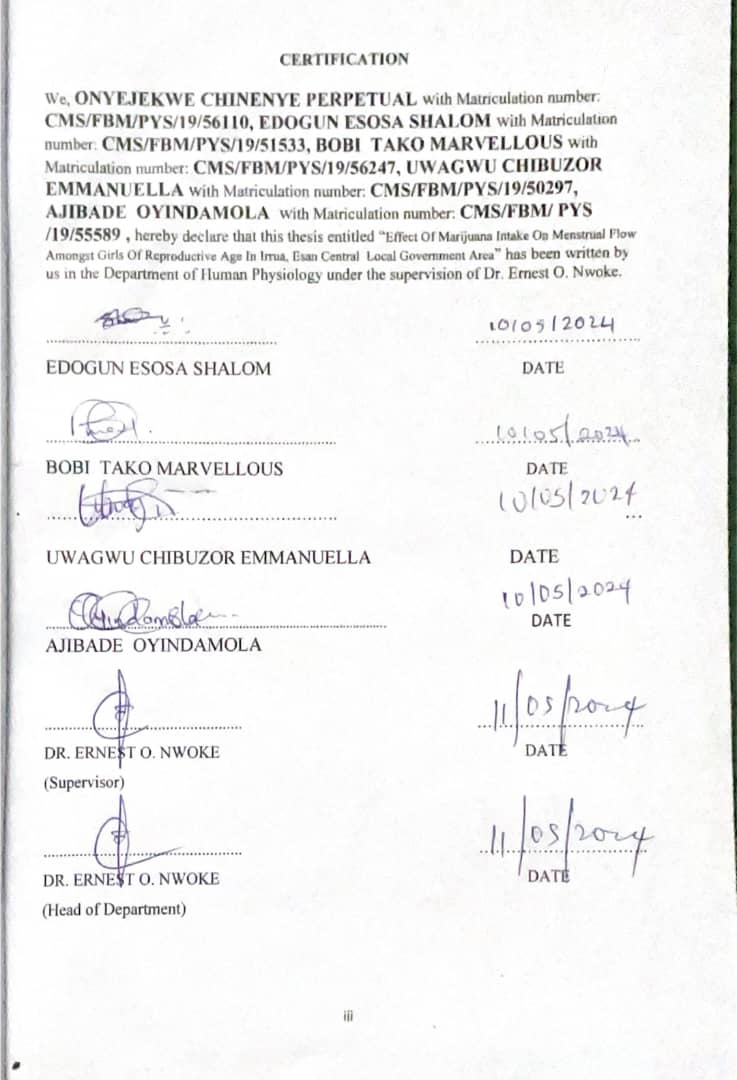 CERTIFICATION
We, ONYEJEKWE CHINENYE PERPETUAL with Matriculation number:
CMS/FBM/PYS/19/56110, EDOGUN ESOSA SHALOM with Matriculation
number: CMS/FBM/PYS/19/51533, BOBI TAKO MARVELLOUS with
Matriculation number: CMS/FBM/PYS/19/56247, UWAGWU CHIBUZOR
EMMANUELLA with Matriculation number: CMS/FBM/PYS/19/50297,
AJIBADE OYINDAMOLA with Matriculation number: CMS/FBM/ PYS
/19/55589 , hereby declare that this thesis entitled “Effect Of Marijuana Intake On Menstrual Flow
Amongst Girls Of Reproductive Age In Irrua, Esan Central Local Government Area” has been written by
us in the Department of Human Physiology under the supervision of Dr. Ernest O. Nwoke.
10/05/2024
EDOGUN ESOSA SHALOM DATE
10/05/2024
BOBI TAKO MARVELLOUS DATE
10/05/2024
UWAGWU CHIBUZOR EMMANUELLA DATE
10/05/2024
DATE
AJIBADE OYINDAMOLA
11/05/2024
DR. ERNEST O. NWOKE DATE
(Supervisor)
11/05/2024
DR. ERNEST O. NWOKE DATE
(Head of Department)
iii